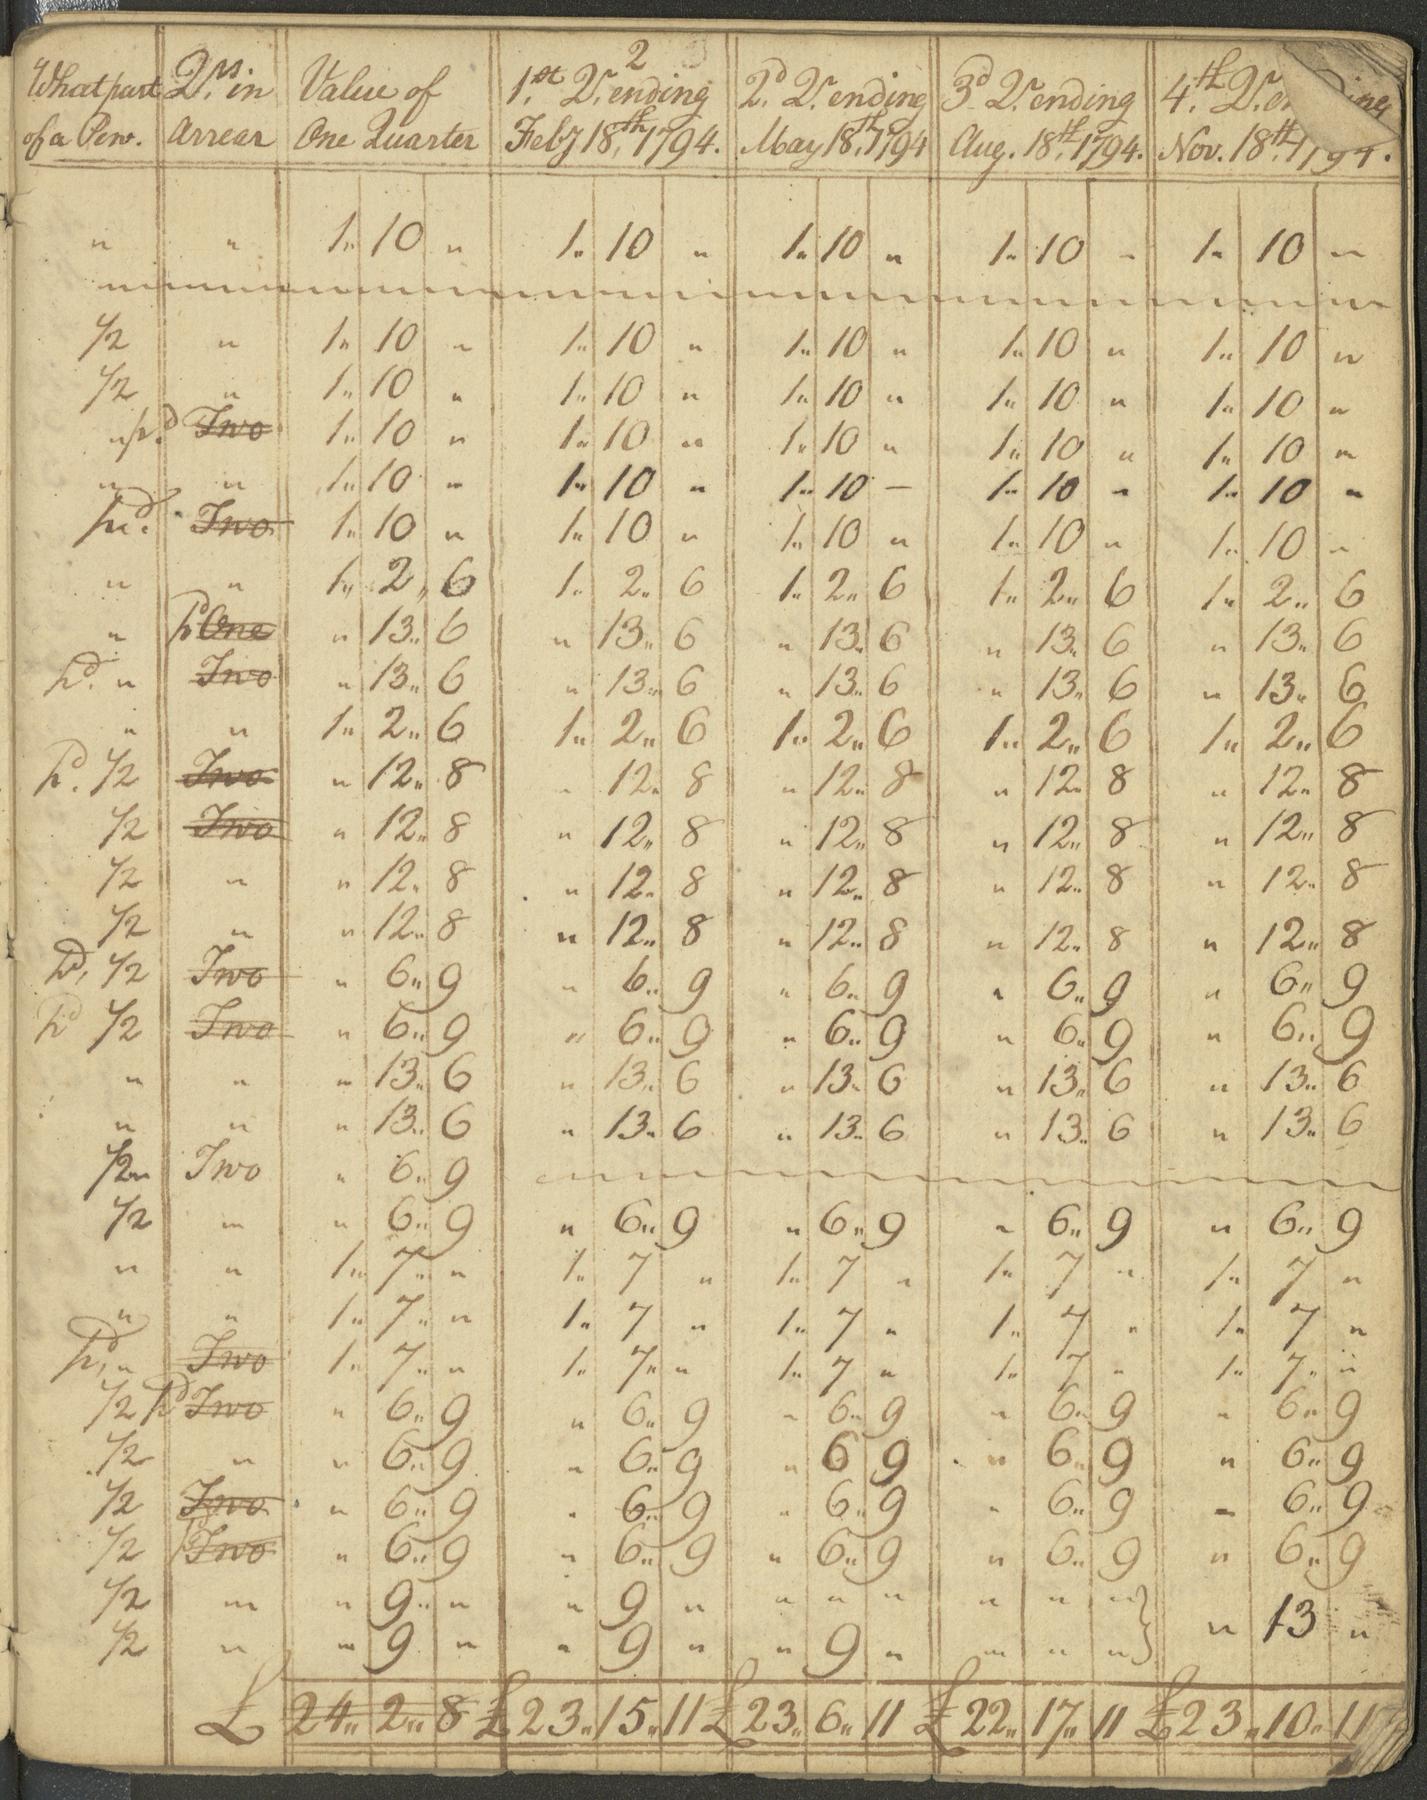 2
What part of a Pew. | Qrs. in Arrear | Value of One Quarter | 1.st Qr. ending Feby 18.th 1794. | 2.d Qr. ending May 18.th 1794 | 3.d Qr. ending Aug. 18.th 1794. | 4.th Qr. ending Nov. 18.th 1794.
" | " | 1" 10 " | 1" 10 " | 1" 10 " | 1" 10 " | 1" 10 "
1/2 | " | 1" 10 " | 1" 10 " | 1" 10 " | 1" 10 " | 1" 10 "
1/2 | " | 1" 10 " | 1" 10 " | 1" 10 " | 1" 10 " | 1" 10 "
" pd. | Two | 1" 10 " | 1" 10 " | 1" 10 " | 1" 10 " | 1" 10 "
" | " | 1" 10 " | 1" 10 " | 1" 10 – | 1" 10 " | 1" 10 "
pd. | Two | 1" 10 " | 1" 10 " | 1" 10 " | 1" 10 " | 1" 10 "
" | " | 1" 2" 6 | 1" 2" 6 | 1" 2" 6 | 1" 2" 6 | 1" 2" 6
" | pd One | " 13" 6 | " 13" 6 | " 13" 6 | " 13" 6 | " 13" 6
pd. " | Two | " 13" 6 | " 13" 6 | " 13" 6 | " 13" 6 | " 13" 6
" | " | 1" 2" 6 | 1" 2" 6 | 1" 2" 6 | 1" 2" 6 | 1" 2" 6
pd. 1/2 | Two | " 12" 8 | " 12" 8 | " 12" 8 | " 12" 8 | " 12" 8
1/2 | Two | " 12" 8 | " 12" 8 | " 12" 8 | " 12" 8 | " 12" 8
1/2 | " | " 12" 8 | " 12" 8 | " 12" 8 | " 12" 8 | " 12" 8
1/2 | " | " 12" 8 | " 12" 8 | " 12" 8 | " 12" 8 | " 12" 8
pd. 1/2 | Two | " 6" 9 | " 6" 9 | " 6" 9 | " 6" 9 | " 6" 9
pd 1/2 | Two | " 6" 9 | " 6" 9 | " 6" 9 | " 6" 9 | " 6" 9
" | " | " 13" 6 | " 13" 6 | " 13" 6 | " 13" 6 | " 13" 6
" | " | " 13" 6 | " 13" 6 | " 13" 6 | " 13" 6 | " 13" 6
1/2 " | Two | " 6" 9
1/2 | " | " 6" 9 | " 6" 9 | " 6" 9 | " 6" 9 | " 6" 9
" | " | 1" 7" " | 1" 7 " | 1" 7 " | 1" 7 " | 1" 7 "
" | " | 1" 7" " | 1" 7 " | 1" 7 " | 1" 7 " | 1" 7 "
pd. " | Two | 1" 7" " | 1" 7" " | 1" 7 " | 1" 7 " | 1" 7" "
1/2 | pd Two | " 6" 9 | " 6" 9 | " 6" 9 | " 6" 9 | " 6" 9
1/2 | " | " 6" 9 | " 6" 9 | " 6 9 | " 6" 9 | " 6" 9
1/2 | Two | " 6" 9 | " 6" 9 | " 6" 9 | " 6" 9 | " 6" 9
1/2 | Two | " 6" 9 | " 6" 9 | " 6" 9 | " 6" 9 | " 6" 9
1/2 | " | " 9" " | " 9 " | " " " | " " "
1/2 | " | " 9 " | " 9 " | " 9 " | " " " } | " 13 "
£ | 24" 2" 8 | £ 23" 15" 11 | £ 23" 6" 11 | £ 22" 17" 11 | £ 23" 10" 11